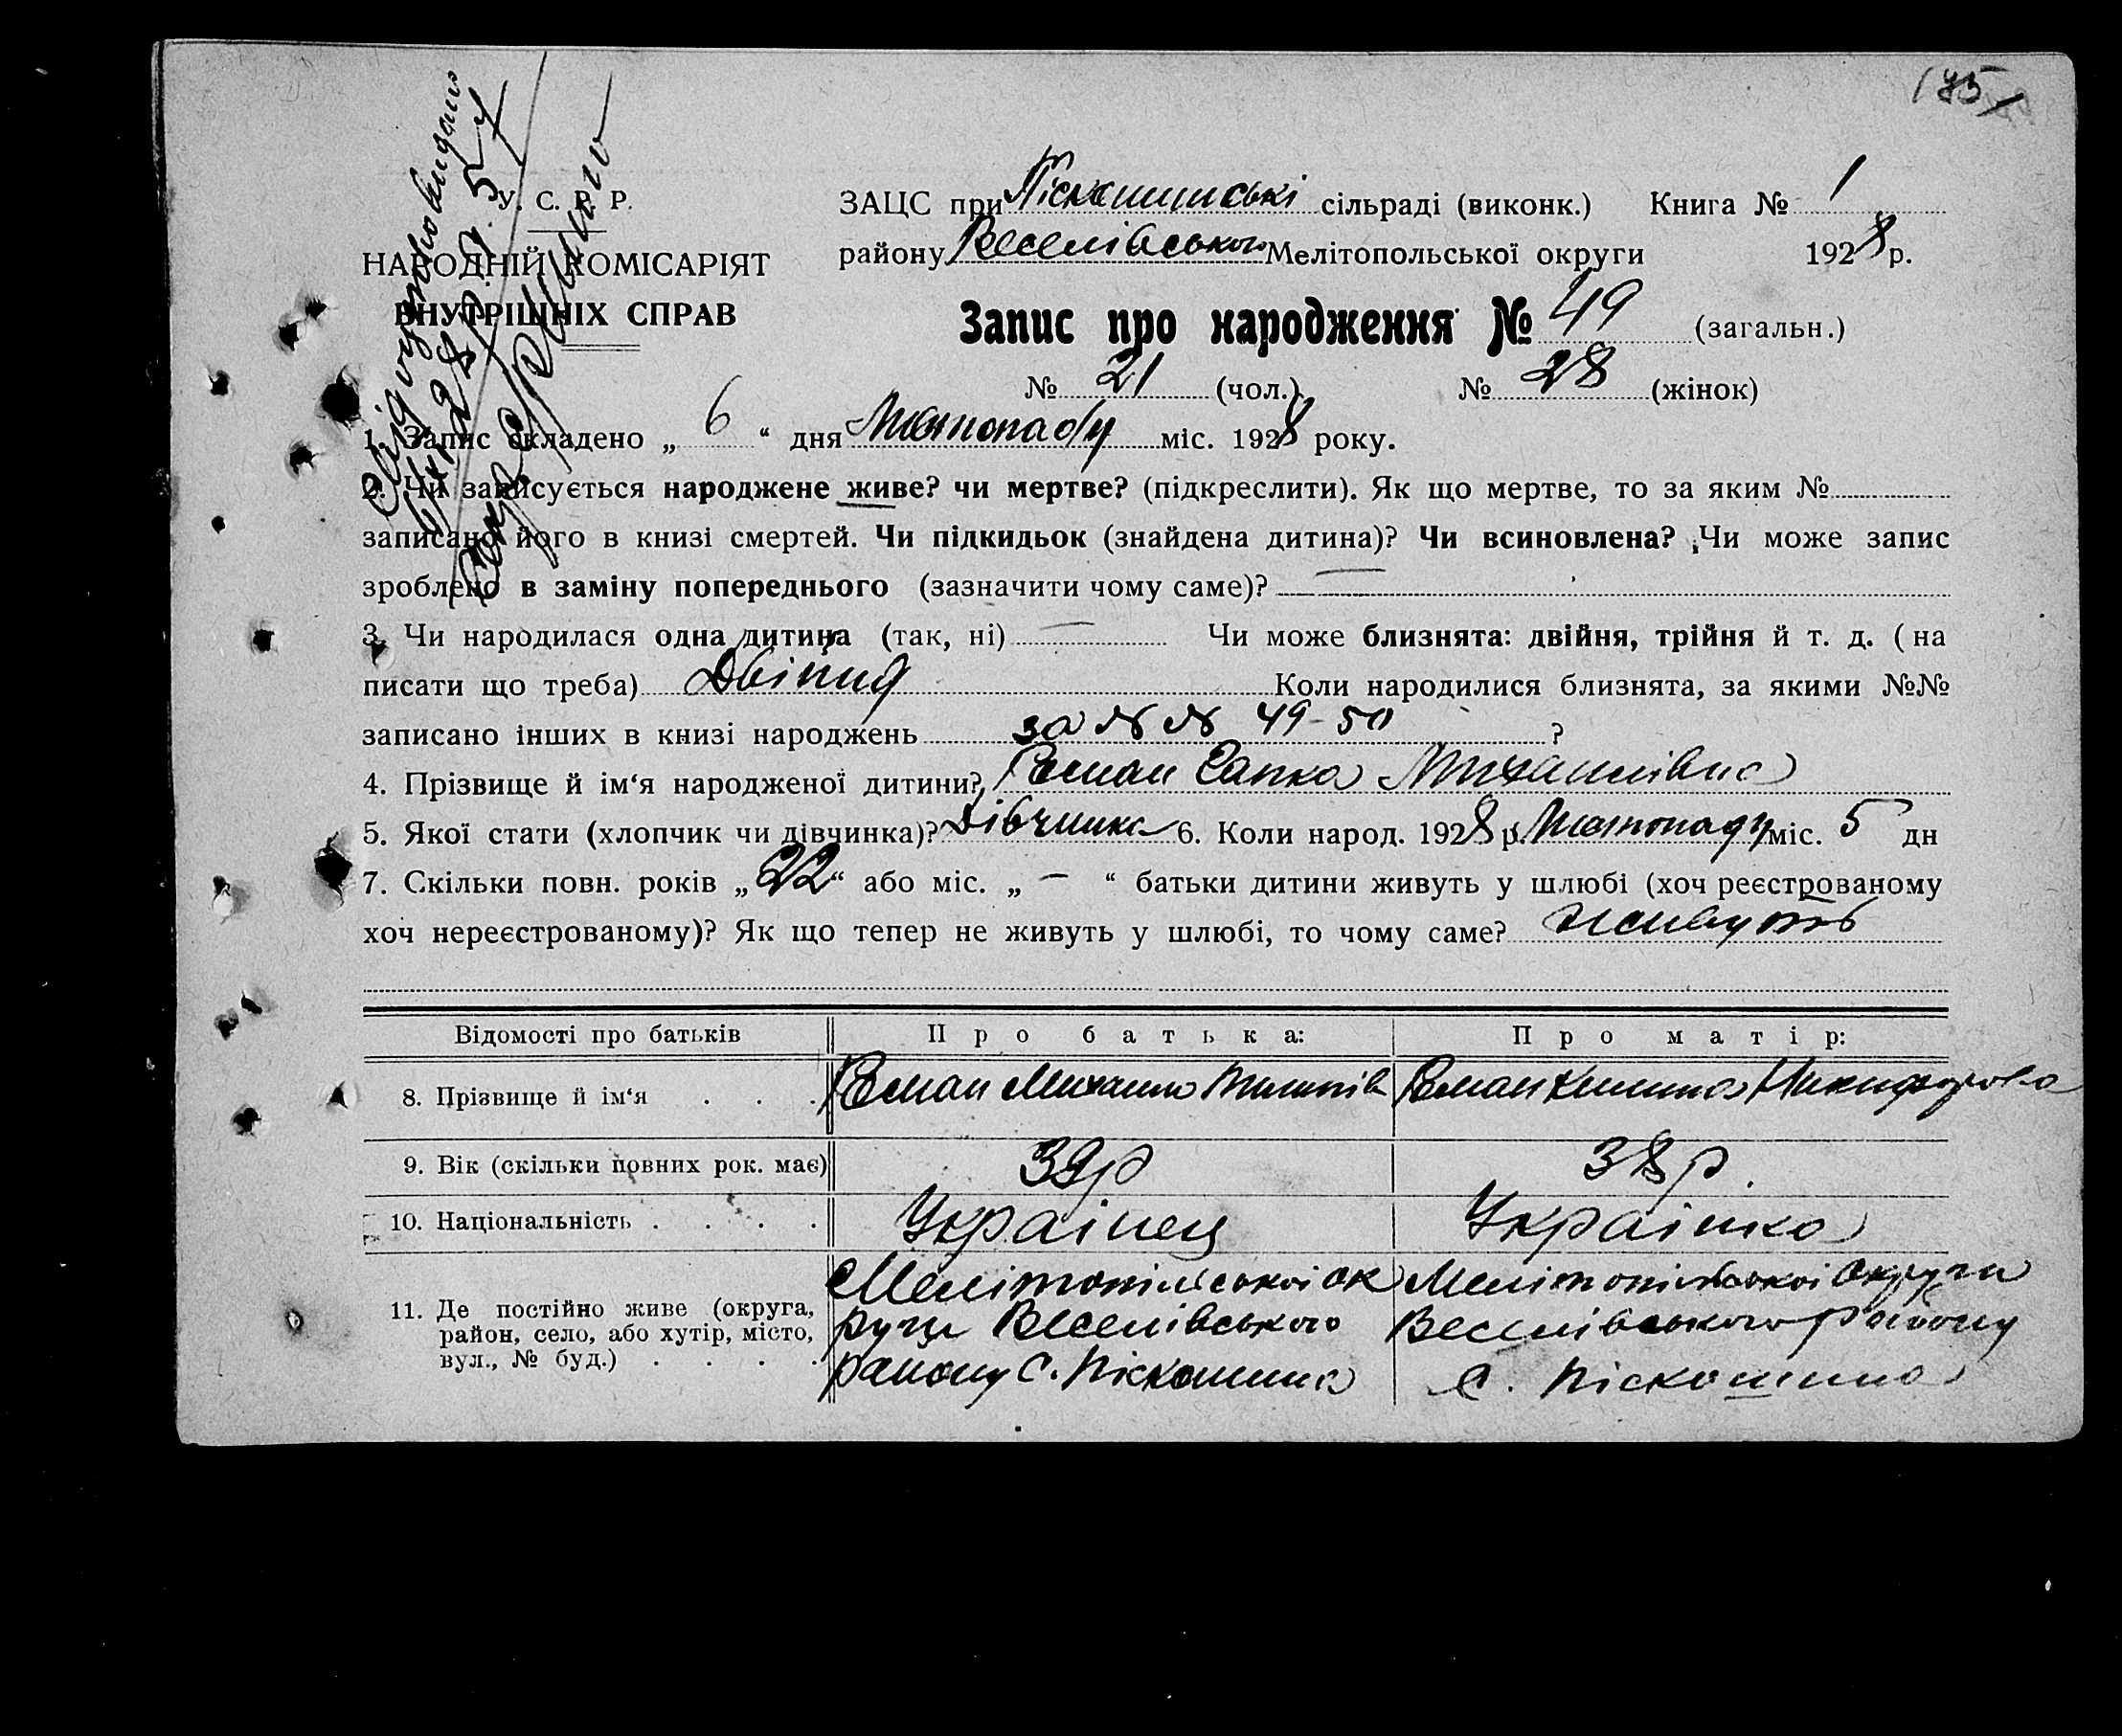 175
У. С. Р. Р.
НАРОДНІЙ КОМІСАРІЯТ
ВНУТРІШНІХ СПРАВ
ЗАЦС при Піскошинські сільраді (виконк.) Книга № 1
району Веселівського Мелітопольської округи 1928 р.
Запис про народження № 49 (загальн.)
№ 21 (чол.) № 28 (жінок)
1. Запис складено „ 6 “ дня Листопаду міс. 1928 року.
2. Чи записується народжене живе? чи мертве? (підкреслити). Як що мертве, то за яким №
записано його в книзі смертей. Чи підкидьок (знайдена дитина)? Чи всиновлена? Чи може запис
зроблено в заміну попереднього (зазначити чому саме)? —
3. Чи народилася одна дитина (так, ні) — Чи може близнята: двійня, трійня й т. д. (на
писати що треба) Двійня Коли народилися близнята, за якими №№
записано інших в книзі народжень за № № 49-50 ?
4. Прізвище й ім‘я народженої дитини? Ганка Михайлівна
5. Якої стати (хлопчик чи дівчинка)? Дівчинка 6. Коли народ. 1928 р. Листопаду міс. 5 дн
7. Скільки повн. років „ 22 “ або міс. „ — “ батьки дитини живуть у шлюбі (хоч реєстрованому
хоч нереєстрованому)? Як що тепер не живуть у шлюбі, то чому саме? живуть
Відомості про батьків Про батька: Про матір:
8. Прізвище й ім‘я . . . Михайло Пилипів Никифорова
9. Вік (скільки повних рок. має) 39р 38 р.
10. Національність . . . . Українец Українка
11. Де постійно живе (округа, район, село, або хутір, місто, вул., № буд.) . . . .
Мелітопільської ок
руги Веселівського
району с. Піскошина
Мелітопільської округи
Веселівського району
с. Піскошина